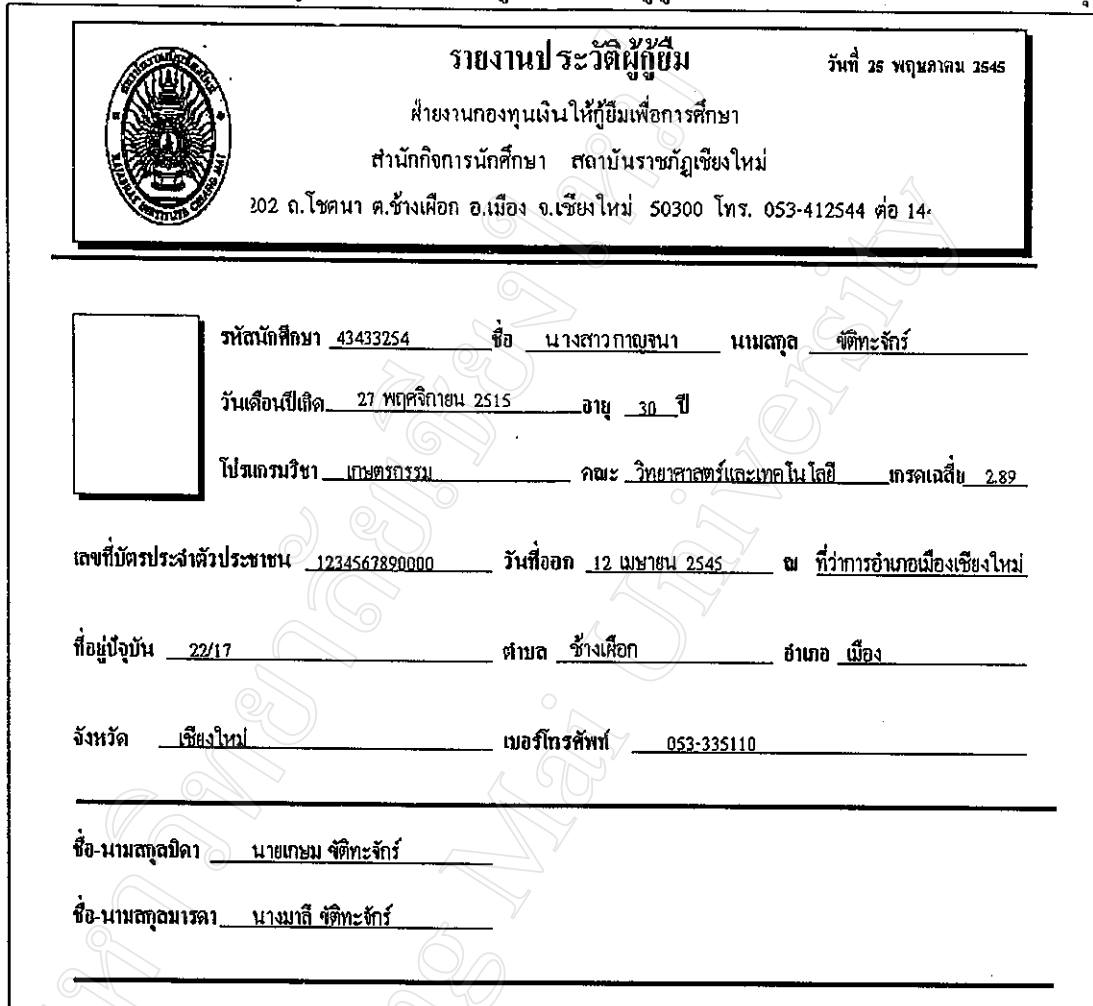 รายงานประวัติผู้กู้ยืม
วันที่ 25 พฤษภาคม 2545
ฝ่ายงานกองทุนเงินให้กู้ยืมเพื่อการศึกษา
สำนักกิจการนักศึกษา สถาบันราชภัฏเชียงใหม่
202 ถ.โชตนา ต.ช้างเผือก อ.เมือง จ.เชียงใหม่ 50300 โทร. 053-412544 ต่อ 14
สถาบันราชภัฏเชียงใหม่
RAJABHAT INSTITUTE CHIANG MAI
รหัสนักศึกษา 43433254 ชื่อ นางสาวกาญจนา นามสกุล ขัติทะจักร์
วันเดือนปีเกิด 27 พฤศจิกายน 2515 อายุ 30 ปี
โปรแกรมวิชา เกษตรกรรม คณะ วิทยาศาสตร์และเทคโนโลยี เกรดเฉลี่ย 2.89
เลขที่บัตรประจำตัวประชาชน 1234567890000 วันที่ออก 12 เมษายน 2545 ณ ที่ว่าการอำเภอเมืองเชียงใหม่
ที่อยู่ปัจุบัน 22/17 ตำบล ช้างเผือก อำเภอ เมือง
จังหวัด เชียงใหม่ เบอร์โทรศัพท์ 053-335110
ชื่อ-นามสกุลบิดา นายเกษม ขัติทะจักร์
ชื่อ-นามสกุลมารดา นางมาลี ขัติทะจักร์